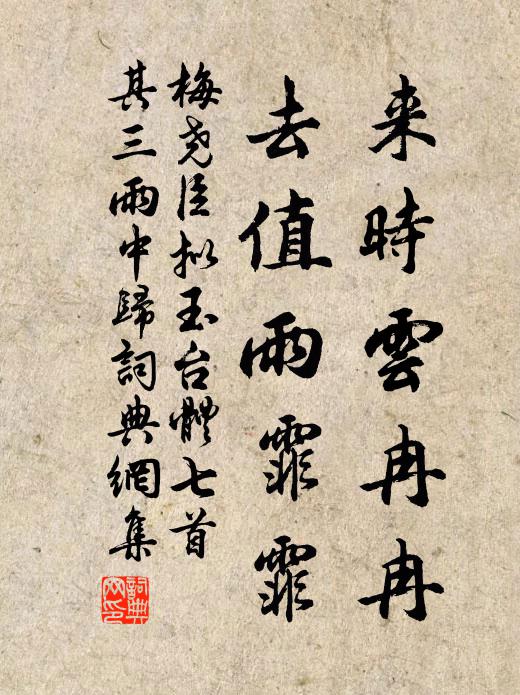 来時雲冉冉
去值雨霏霏
梅尧臣拟玉台體七首
其三雨中歸詞典網集
詞典网印